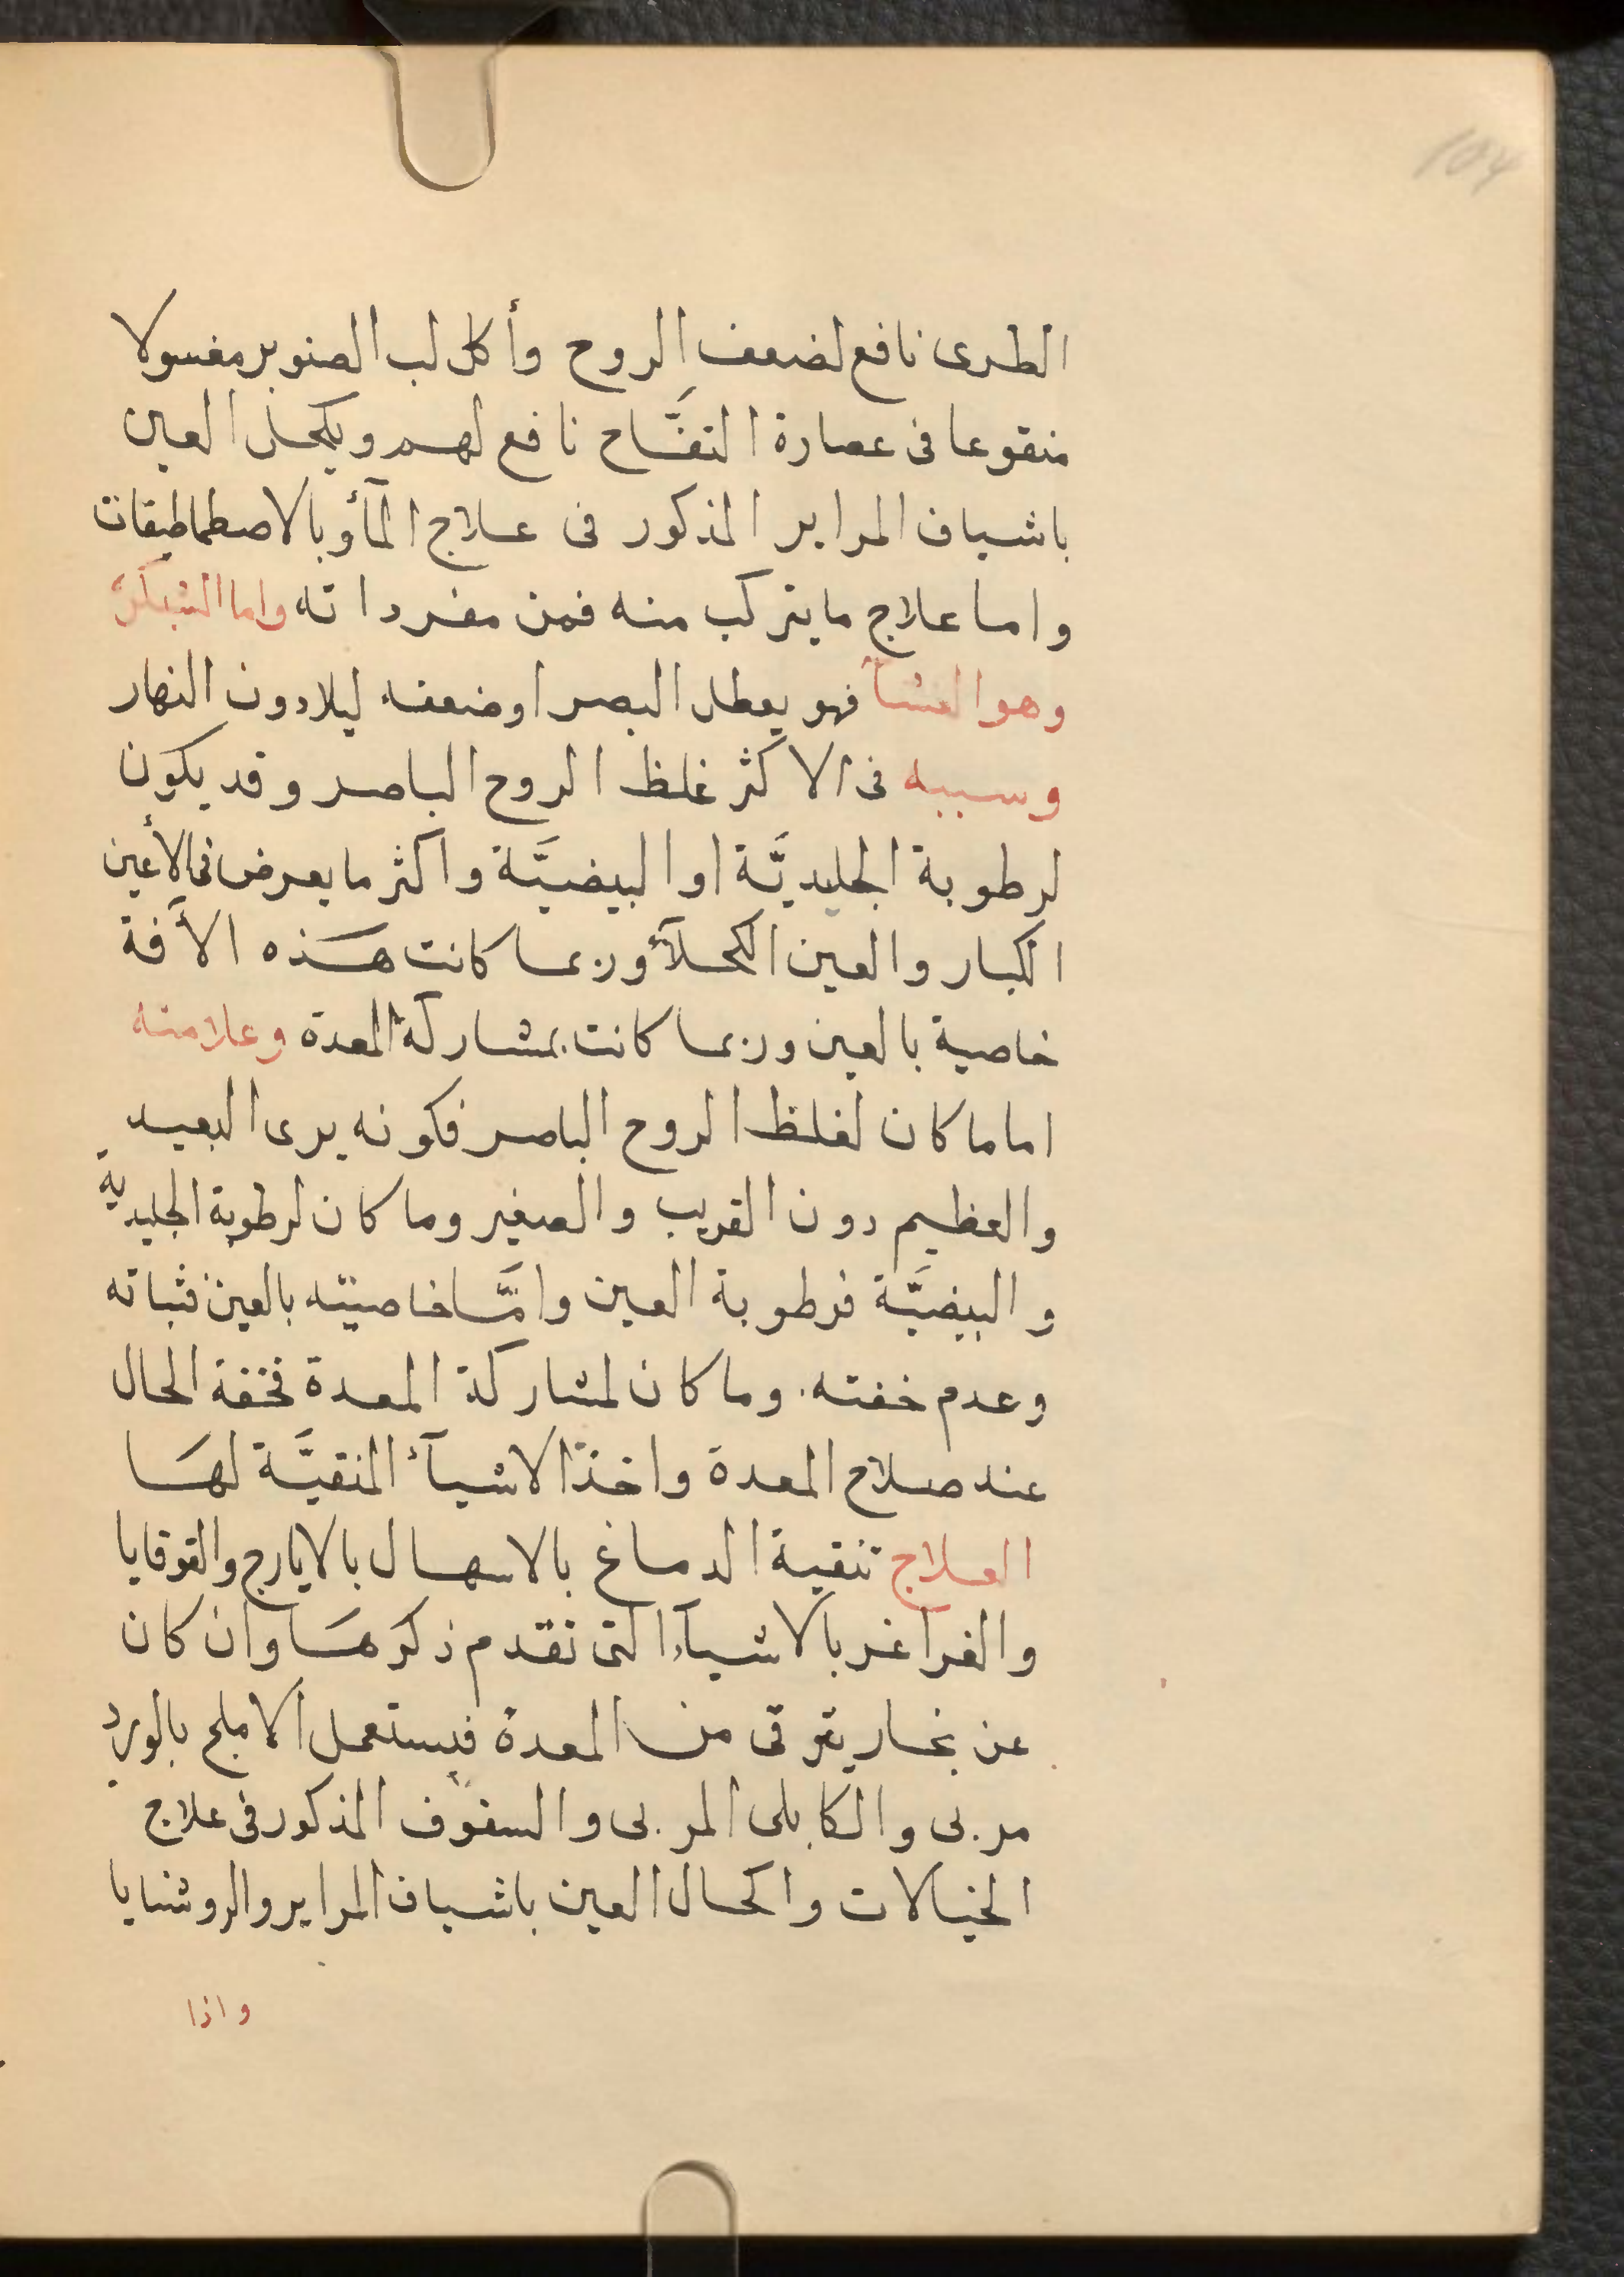 104
الطرى نافع لضعف الروح وأكل لب الصنوبر مغسولا
منقوعا فى عصارة التفَّاح نافع لهم ويكحل العين
باشياف المراير المذكور فى علاج المآء وبالاصطماطيقات
واما علاج ما يتركب منه فمن مفرداته واما الشبكرة
وهو العشآ فهو يعطل البصر او ضعفه ليلا دون النهار
وسببه فى الاكثر غلظ الروح الباصر وقد يكون
لرطوبة الجليديَّة او البيضيَّة واكثر ما يعرض فى الأعين
الكبار والعين الكحلآء وربما كانت هذه الآفة
خاصية بالعين وربما كانت بمشاركة المعدة وعلامته
اما ما كان لغلظ الروح الباصر فكونه يرى البعيد
والعظيم دون القريب والصغير وما كان لرطوبة الجليدية
والبيضيَّة فرطوبة العين وامَّا خاصيته بالعين فثباته
وعدم خفته. وما كان لمشاركة المعدة فخفة الحال
عند صلاح المعدة واخذ الاشيآء المنقيَّة لها
العلاج تنقية الدماغ بالاسهال بالايارج والقوقايا
والغراغر بالاشيآء التى تقدم ذكرها وان كان
عن بخار يترقى من المعدة فيستعمل الاملج بالورد
مربى والكابلى المربى والسفوف المذكور فى علاج
الخيالات واكحال العين باشياف المراير والروشنايا
واذا